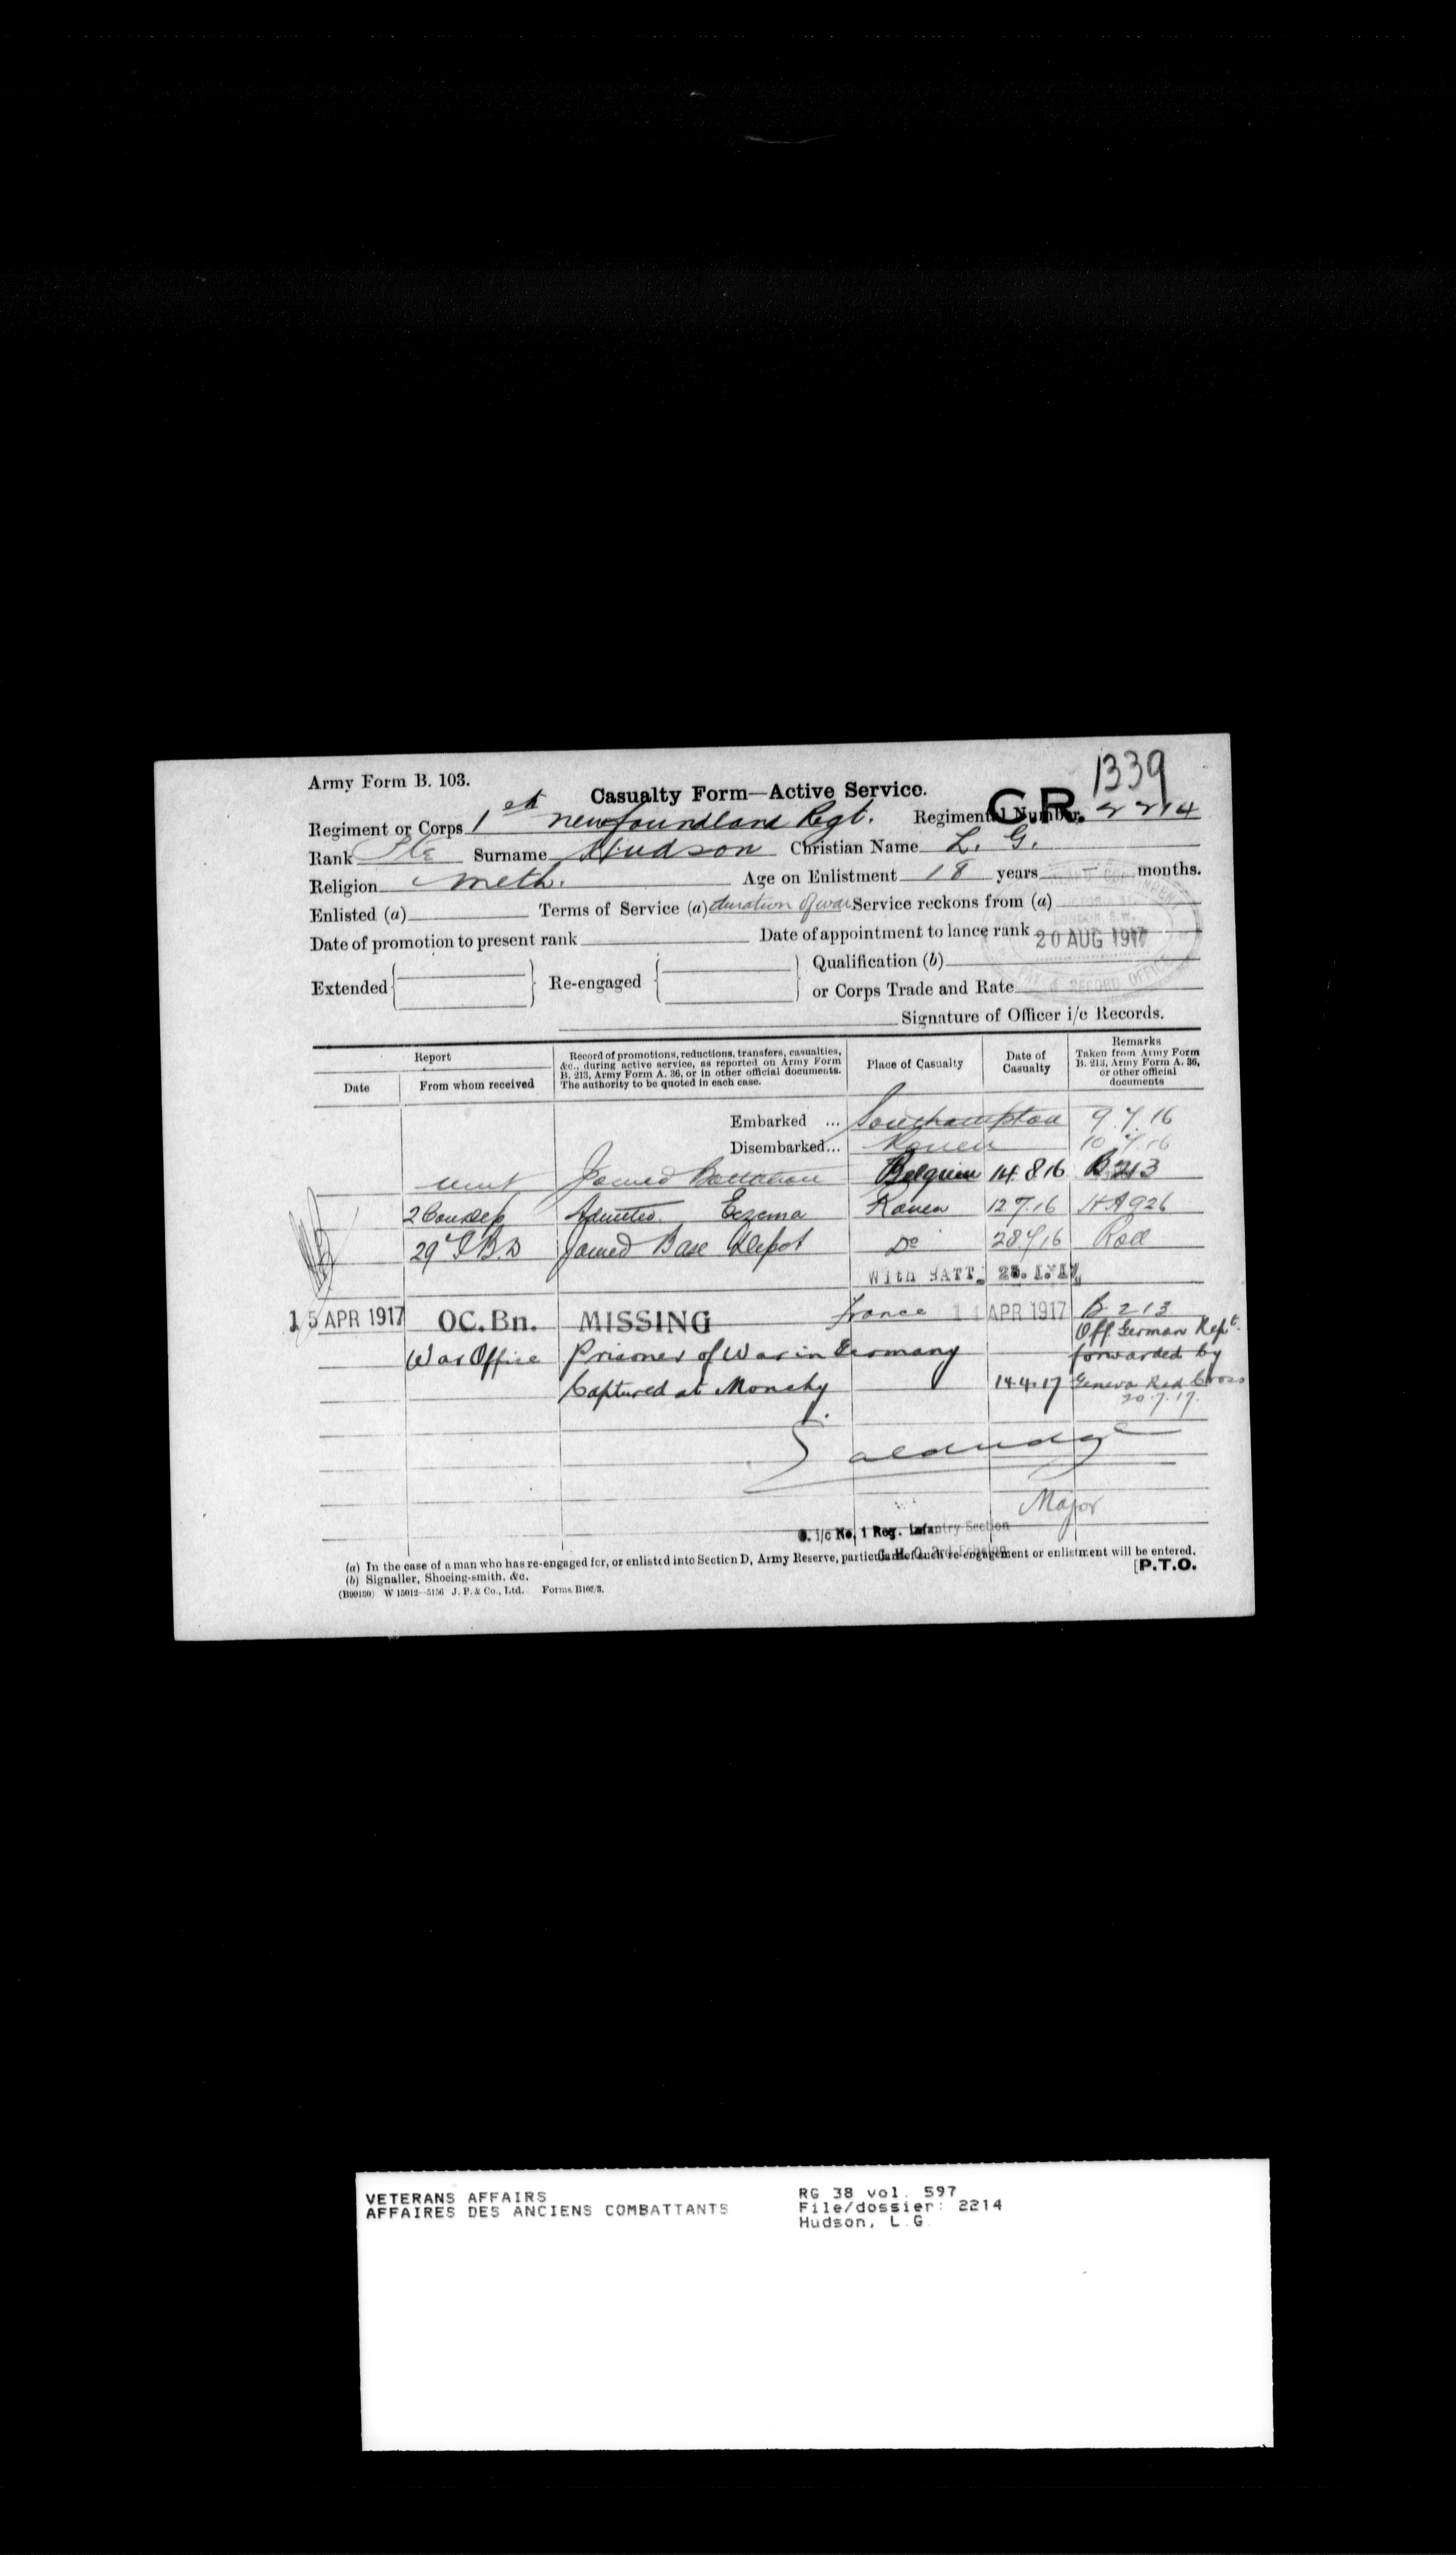 1339
Army Form B. 103.
Casualty Form—Active Service.
C.R.
Regiment or Corps 1st Newfoundland Regt. Regimental Number 2214
Rank Pte Surname Hudson Christian Name L. G.
Religion Meth. Age on Enlistment 18 years — months.
Enlisted (a) Terms of Service (a) duration of war Service reckons from (a)
Date of promotion to present rank Date of appointment to lance rank
20 AUG 1917
PAY & RECORD OFFICE
Extended Re-engaged Qualification (b)
or Corps Trade and Rate
Signature of Officer i/c Records.
Report Record of promotions, reductions, transfers, casualties, &c., during active service, as reported on Army Form B. 213, Army Form A. 36, or in other official documents. The authority to be quoted in each case. Place of Casualty Date of Casualty Remarks Taken from Army Form B. 213, Army Form A. 36, or other official documents
Date From whom received
Embarked ... Southampton 9.7.16
Disembarked... Rouen 10.7.16
Unit Joined Battalion Belgium 14.8.16 B213
2 Con Dep Admitted Eczema Rouen 12.7.16
29 I.B.D Joined Base Depot Do 28 7 16 Roll
With BATT.
15 APR 1917 OC. Bn. MISSING France 14 APR 1917 B 213
War Office Prisoner of War in Germany Off German Rept. forwarded by
Captured at Monchy 14.4.17 Geneva Red Cross
20.7.17.
Major
O. i/c No. 1 Reg. Infantry Section
G.H.Q. 3rd Echelon
(a) In the case of a man who has re-engaged for, or enlisted into Section D, Army Reserve, particulars of such re-engagement or enlistment will be entered.
(b) Signaller, Shoeing-smith, &c.
[P.T.O.
W 15012—5156 J. P. & Co., Ltd.
VETERANS AFFAIRS
AFFAIRES DES ANCIENS COMBATTANTS
RG 38 vol. 597
File/dossier: 2214
Hudson, L.G.